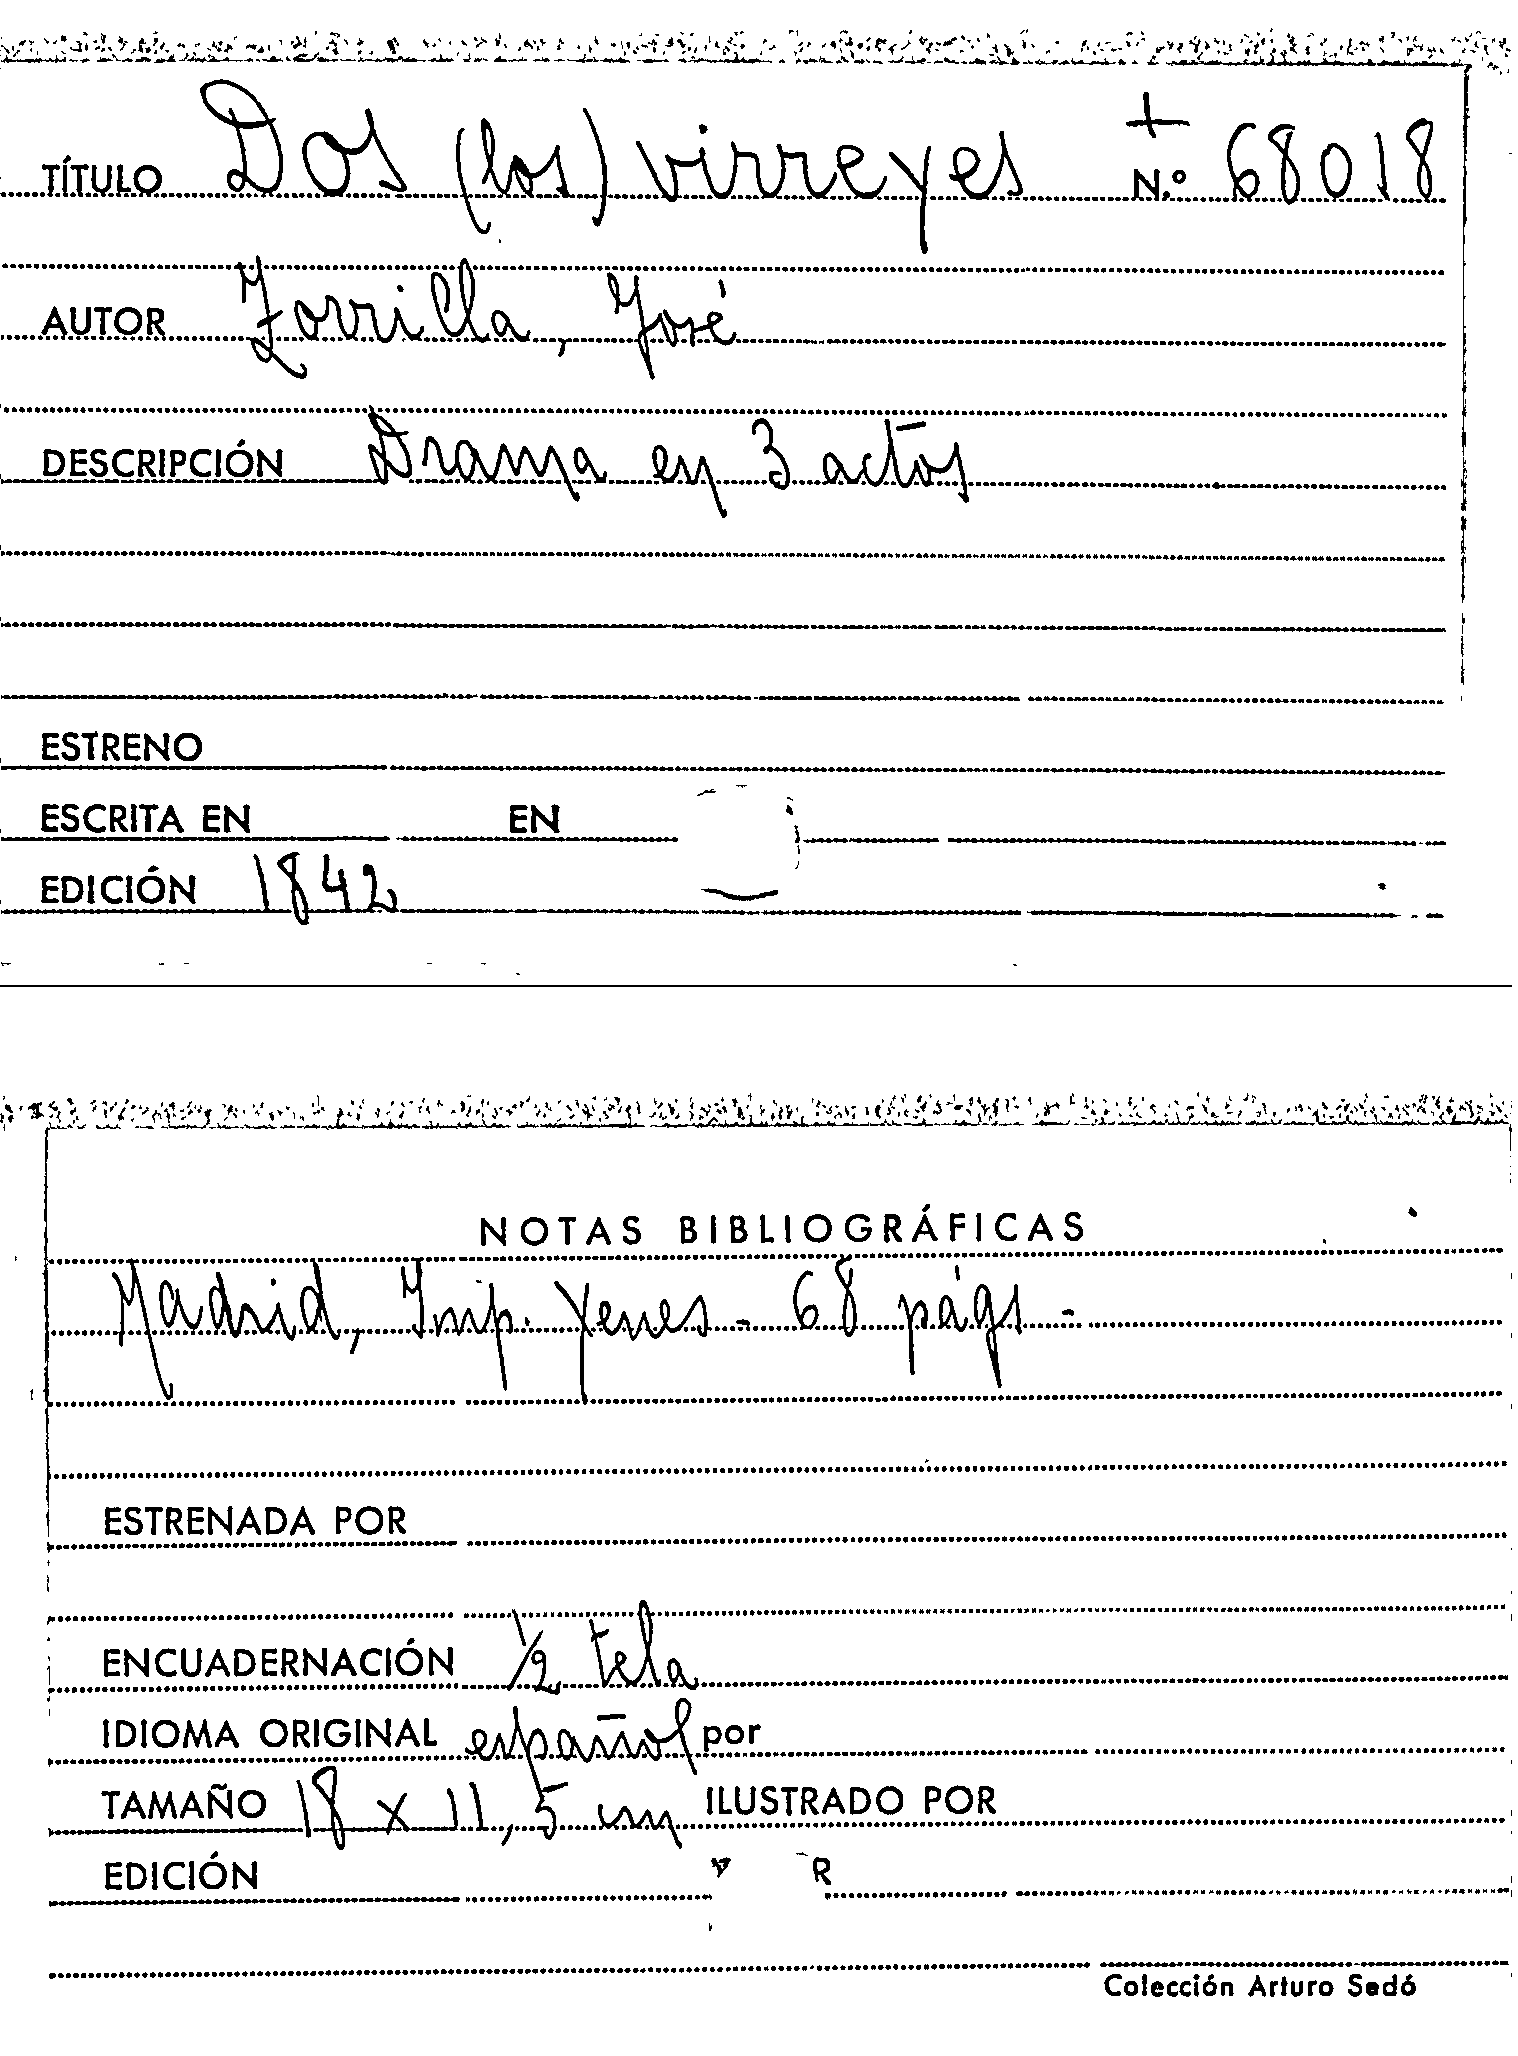 TÍTULO Dos (los) virreyes + N.º 68018
AUTOR Zorrilla, José
DESCRIPCIÓN Drama en 3 actos
ESTRENO
ESCRITA EN EN
EDICIÓN 1842
NOTAS BIBLIOGRÁFICAS
Madrid, Imp. Yenes - 68 págs -
ESTRENADA POR
ENCUADERNACIÓN 1/2 tela
IDIOMA ORIGINAL español por
TAMAÑO 18 x 11,5 cm ILUSTRADO POR
EDICIÓN R
Colección Arturo Sedó